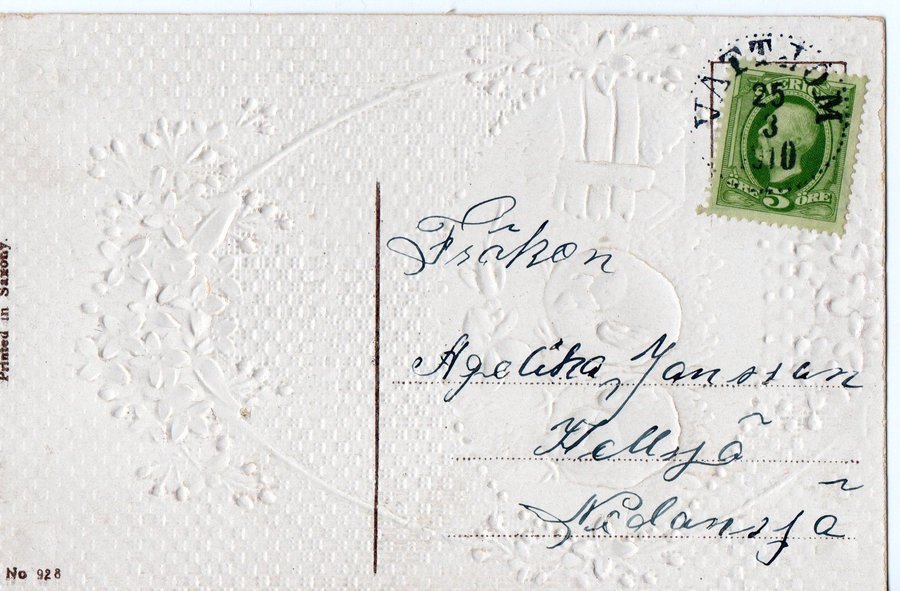 VATTJOM
25
3
10
SVERIGE
5
ÖRE
Fröken
Agelika Jansson
Hellsjö
Nedansjö
Printed in Saxony.
No 928